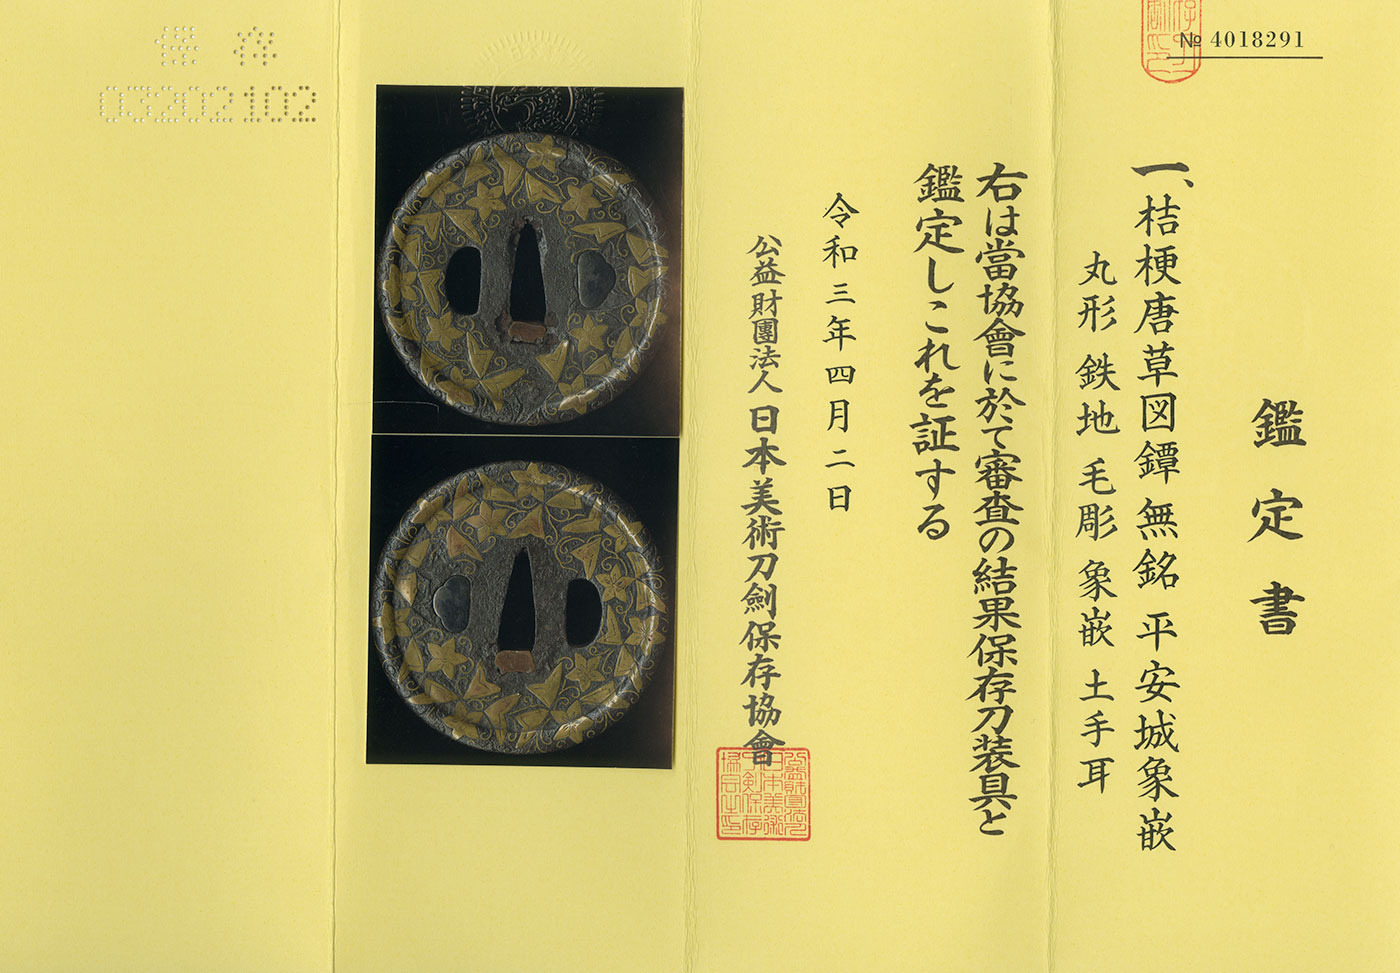 № 4018291
鑑定書
一、桔梗唐草図鐔 無銘 平安城象嵌
丸形 鉄地 毛彫 象嵌 土手耳
右は當協會に於て審査の結果保存刀装具と
鑑定しこれを証する
令和三年四月二日
公益財團法人 日本美術刀劍保存協會
保存
03202102